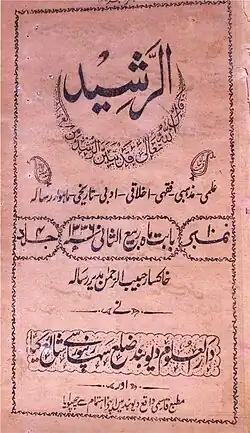 الرشید
قال اللہ تعالیٰ قد تبین الرشد من الغی
علمی - مذہبی - فقہی - اخلاقی - ادبی - تاریخی - ماہوار رسالہ
نمبر ۱۰ بابت ماہ ربیع الثانی ۱۳۳۶ جلد ۴
خاکسار حبیب الرحمن مدیر رسالہ
نے
دارالعلوم دیوبند ضلع سہارنپور سے شائع کیا
اور
مطبع قاسمی واقع دیوبند میں اپنے اہتمام سے چھپوایا